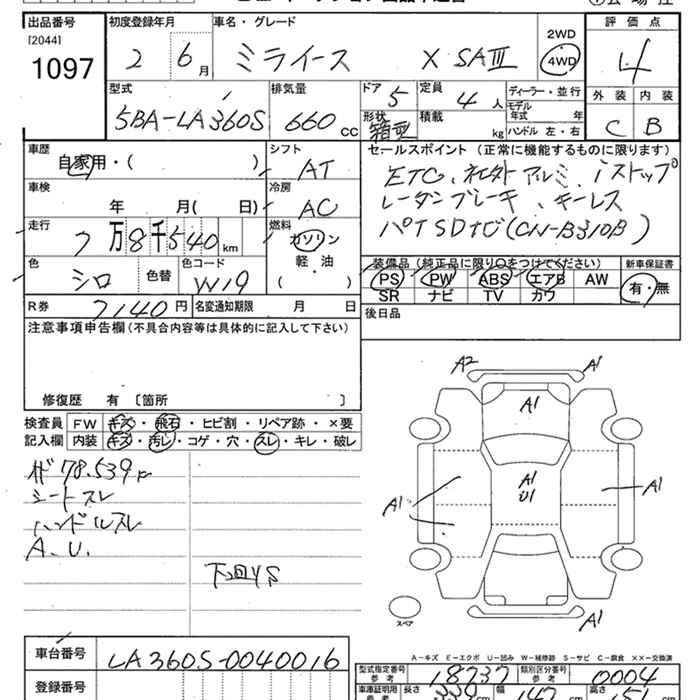 出品番号 初度登録年月 車名・グレード 2WD 評価点
[2044] 2 6月 ミライース X SAⅢ 4WD 4
1097
型式 排気量 ドア 5 定員 4人 ディーラー・並行 外装 内装
モデル年式 年
5BA-LA360S 660cc 形状 箱型 積載 kg ハンドル 左・右 C B
車歴 シフト セールスポイント (正常に機能するものに限ります)
自家用・( ) AT ETC、社外アルミ、iストップ
車検 冷房 レーダーブレーキ、キーレス
年 月( 日) AC パイSDナビ(CN-B310B)
走行 燃料
7万8千540km ガソリン
軽・油
( )
色 色替 色コード 装備品 (純正品に限り○をつけてください) 新車保証書
シロ W19 PS PW ABS エアB AW 有・無
SR ナビ TV カワ
R券 7140円 名変通知期限 月 日 後日品
注意事項申告欄(不具合内容等は具体的に記入して下さい)
修復歴 有 〔箇所 〕
検査員 FW キズ・飛石・ヒビ割・リペア跡・×要
記入欄 内装 キズ・汚レ・コゲ・穴・スレ・キレ・破レ
78.539
シートスレ
ハンドルスレ
A.U.
下廻りS
A2 A1
A1
A1
U1
A1 A1
A1
スペア
A-キズ E-エクボ U-凹み W-補修跡 S-サビ C-腐食 XX-交換済
車台番号 LA360S-0040016
型式指定番号 参考 18737 類別区分番号 参考 0004
登録番号
車庫証明用 参考 長さ cm 幅 147 cm 高さ cm